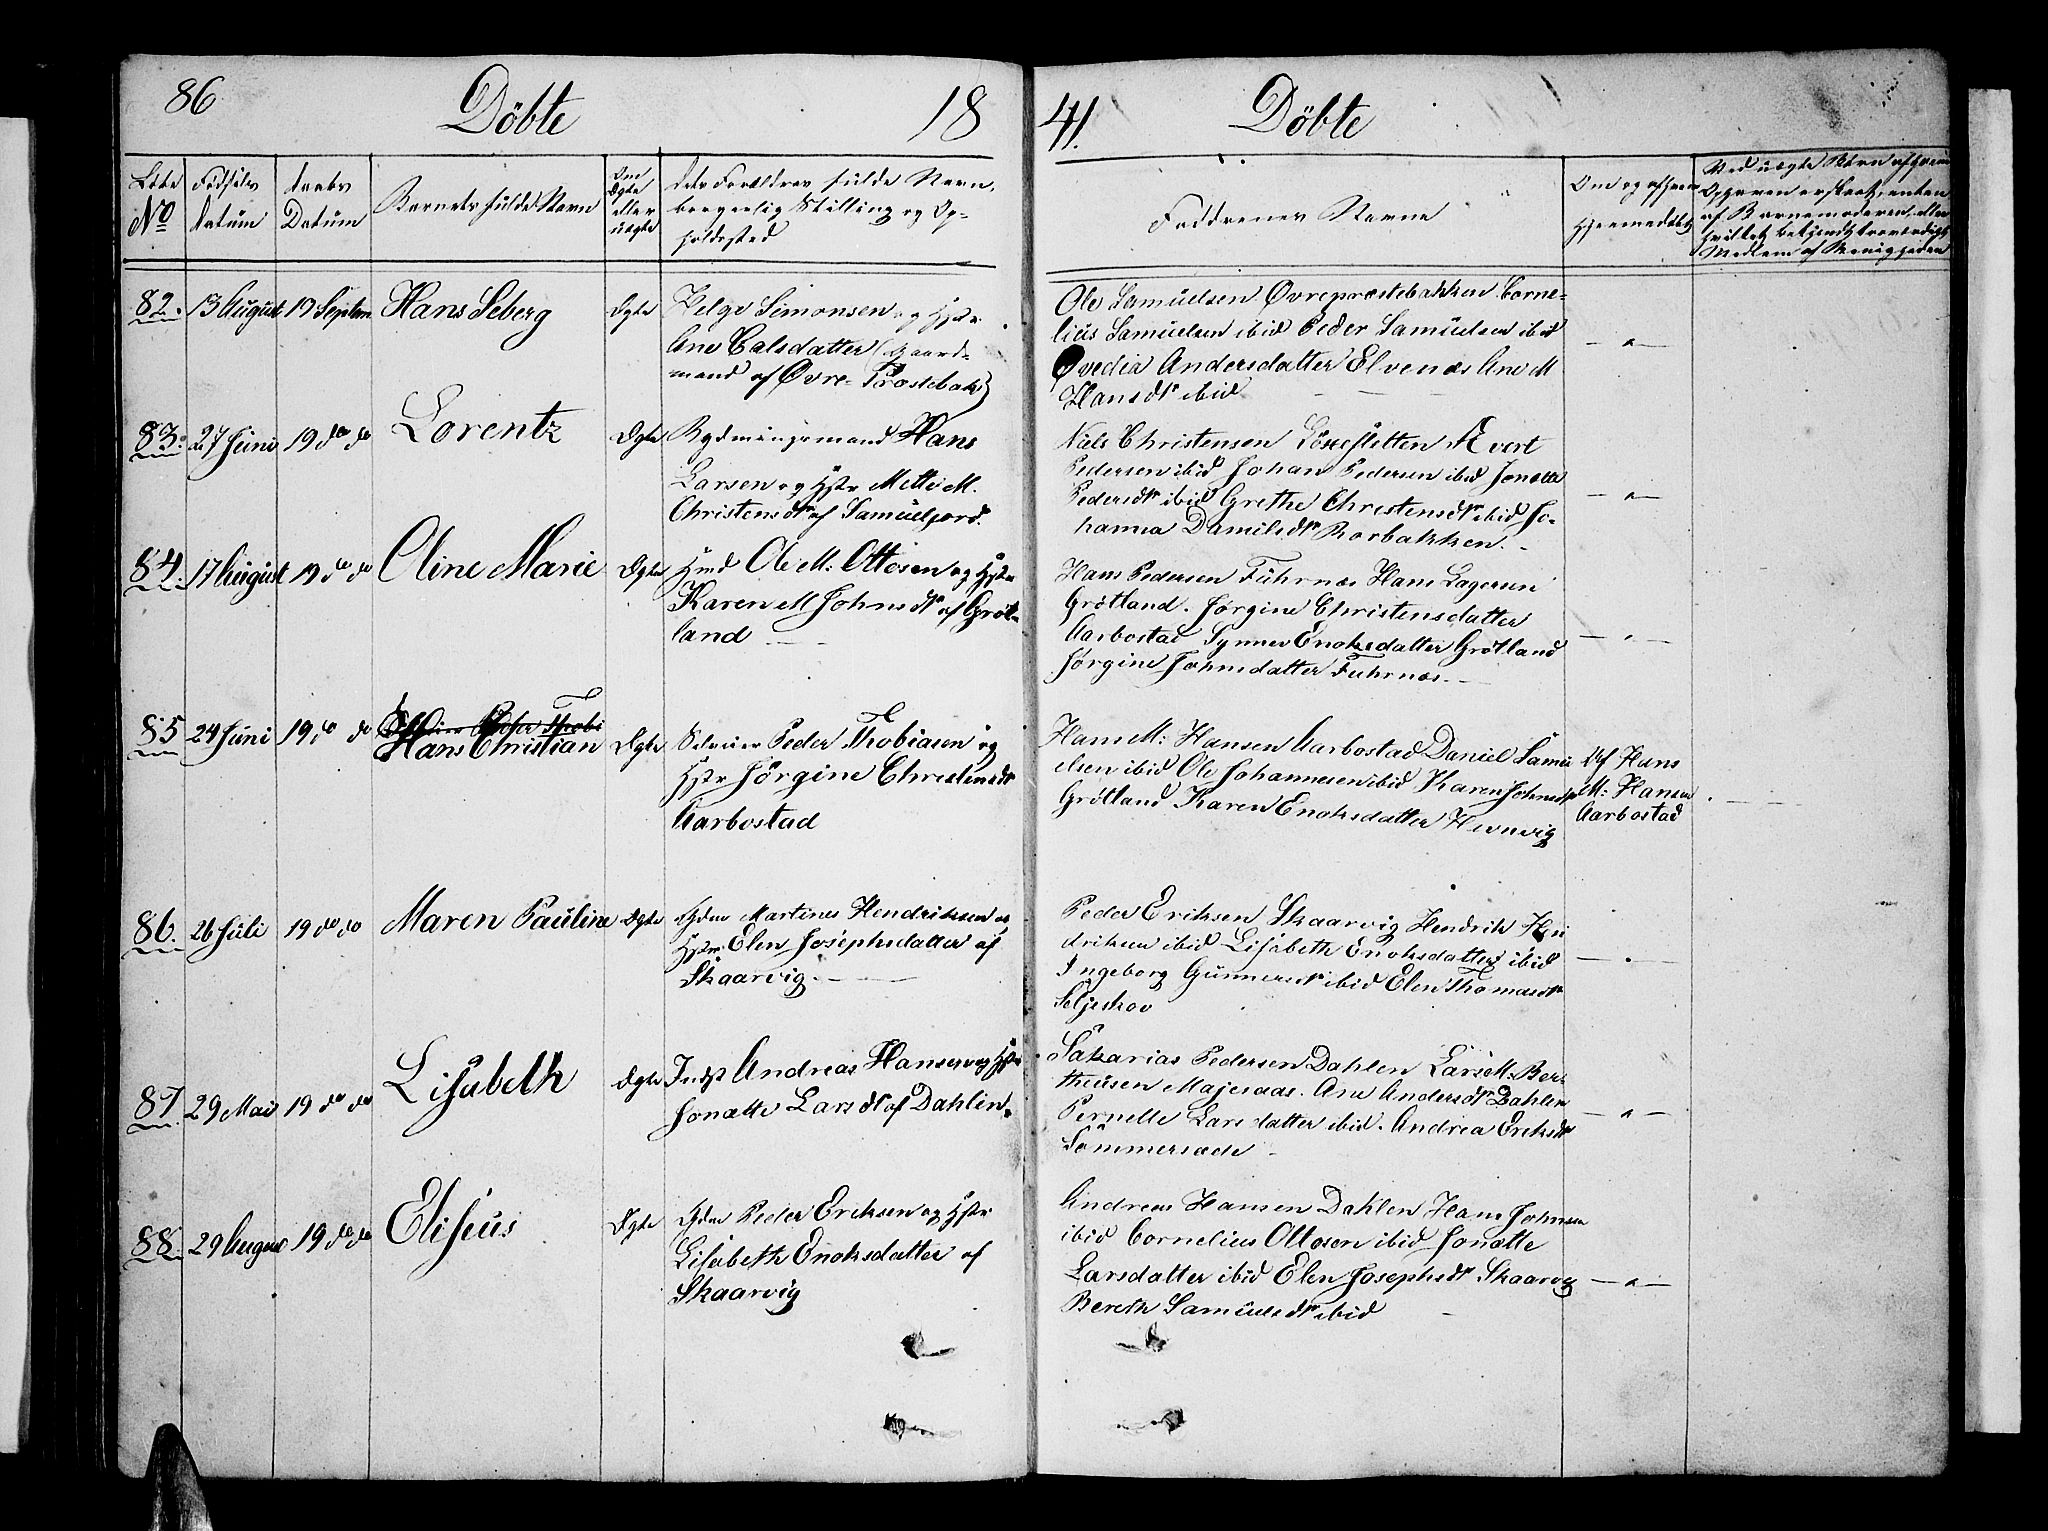 86 Döbte 18
41. Döbte
Löbe Fødsels Daabs Barnets fulde Navn Om Ægte eller uægte Dets Forældres fulde Navn,
No Datum Datum borgerlig Stilling og Op-
holdssted
Faddrenes Navne
Om og af hvem Hjemmedöbt
Med uægte Börn af hvem
Opgaven er skeet, enten
af Barnemoderen, eller
hvilket bekjendt troværdigt
Medlem af Menigheden
82. 13 August 19 Septem Hans Seberg Ægte Helge Simonsen og Hstr
Ane Calsdatter (Gaard-
mand af Øvre-Præstebak)
Ole Samuelsen Øvrepræstebakken Corne-
lius Samuelsen ibid Peder Samuelsen ibid
Ovedia Andersdatter Elvenæs Ane M
Hansdtr ibid
83. 27 Juni 19 do do Lorentz Ægte Rydningsmand Hans
Larsen og Hstr Mette M.
Christensdtr af Samueljord.
Niels Christensen Löxesletten Evert
Pedersen ibid Johan Pedersen ibid Jonette
Pedersdtr ibid Grethe Christensdtr ibid Jo-
hanna Danielsdtr Rorbakken.
84. 17 August 19 do do Oline Marie Ægte Hmd Ole M: Ottesen og Hstr
Karen M Johnsdtr af Gröt-
land
Hans Pedersen Fuhrnæs Hans Lagesen
Grötland. Jørgine Christensdatter
Aarbostad Synnev Enoksdatter Grötland
Jørgine Johnsdatter Fuhrnæs.
85 24 Juni 19 do do Hans Christian Ægte Peder Thobiasen og
Hstr Jörgine Christensdtr
Aarbostad
Hans M: Hansen Aarbostad Daniel Samu
elsen ibid Ole Johannesen ibid Karen Johnsdtr
Grötland Karen Enoksdatter Hernvig
Af Hans
M: Hansen
Aarbostad
86. 26 Juli 19 do do Maren Pauline Ægte Martines Hendriksen og
Hstr Elen Josephsdatter af
Skaarvig.
Peder Eriksen Skaarvig Hendrik Hen
driksen ibid Lisabeth Enoksdatter ibid
Ingeborg Gunnersdtr ibid Elen Thomasdtr
Seljeskov
87. 29 Mai 19 do do Lisabeth Ægte Indst Andreas Hansen og Hstr
Jonette Larsdtr af Dahlen
Sakarias Pedersen Dahlen Lars M: Ber-
theusen Majesaas. Ane Andersdtr Dahlen
Pernelle Larsdatter ibid. Andrea Eriksdtr
Sommersæde
88. 29 August 19 do do Eliseus Ægte Peder Eriksen og Hstr
Lisabeth Enoksdatter af
Skaarvig
Andreas Hansen Dahlen Hans Johnsen
ibid Cornelius Ottosen ibid Jonette
Larsdatter ibid Elen Josephsdtr Skaarvig
Bereth Samuelsdtr ibid